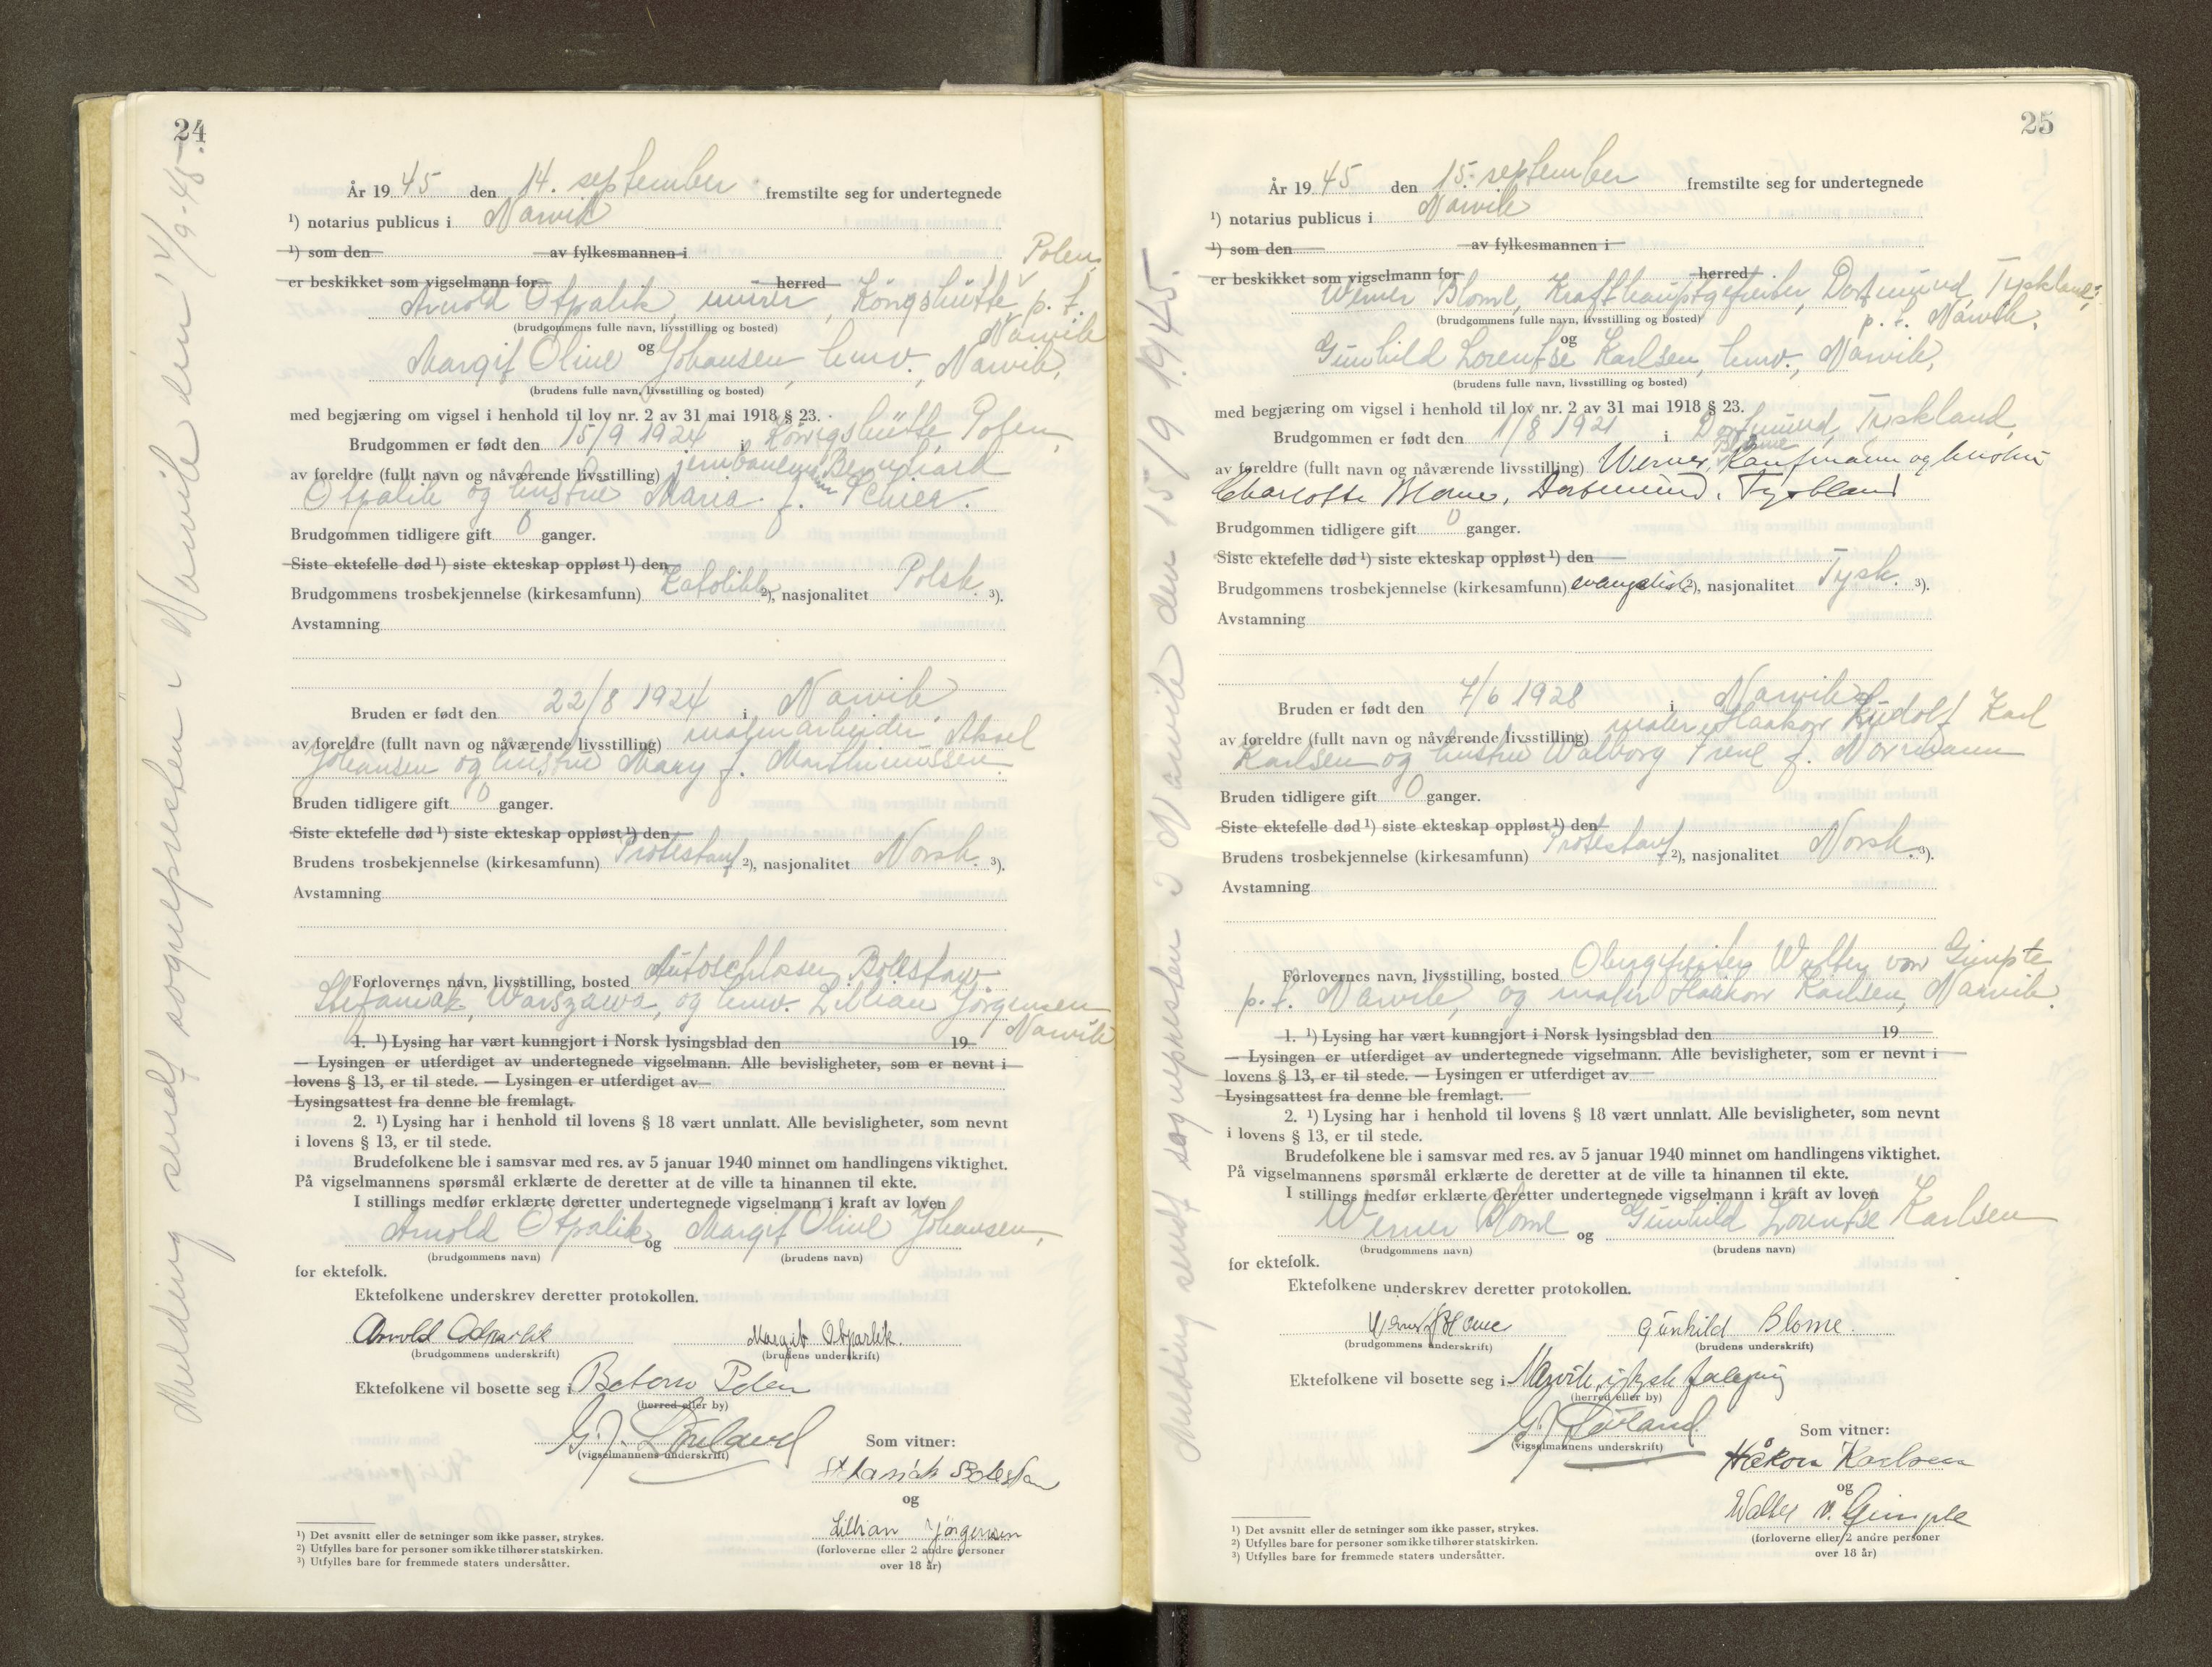 24
År 19 45 den 14. september fremstilte seg for undertegnede
¹) notarius publicus i Narvik
¹) som den av fylkesmannen i
er beskikket som vigselmann for herred
Polen,
Arnold Otpalik, murer, Köngshütte p. t.
(brudgommens fulle navn, livsstilling og bosted)
Narvik
og
Margit Oline Johansen, husv., Narvik,
(brudens fulle navn, livsstilling og bosted)
med begjæring om vigsel i henhold til lov nr. 2 av 31 mai 1918 § 23.
Brudgommen er født den 15/9 1924 i Königshütte, Polen,
av foreldre (fullt navn og nåværende livsstilling) Bernhard
Otpalik og hustru Maria f.
Brudgommen tidligere gift 0 ganger.
Siste ektefelle død ¹) siste ekteskap oppløst ¹) den
Brudgommens trosbekjennelse (kirkesamfunn) Katolikk ²), nasjonalitet Polsk. ³).
Avstamning
Bruden er født den 22/8 1924 i Narvik
av foreldre (fullt navn og nåværende livsstilling) malmarbeider Aksel
Johansen og hustru Mary f. Marthinussen.
Bruden tidligere gift 0 ganger.
Siste ektefelle død ¹) siste ekteskap oppløst ¹) den
Brudens trosbekjennelse (kirkesamfunn) Protestant ²), nasjonalitet Norsk. ³).
Avstamning
Forlovernes navn, livsstilling, bosted Autoschlosser Boleslaw
Stefaniak, Warszawa, og husv. Lillian Jörgensen
Narvik
1. ¹) Lysing har vært kunngjort i Norsk lysingsblad den 19
— Lysingen er utferdiget av undertegnede vigselmann. Alle bevisligheter, som er nevnt i
lovens § 13, er til stede. — Lysingen er utferdiget av
Lysingsattest fra denne ble fremlagt.
2. ¹) Lysing har i henhold til lovens § 18 vært unnlatt. Alle bevisligheter, som nevnt
i lovens § 13, er til stede.
Brudefolkene ble i samsvar med res. av 5 januar 1940 minnet om handlingens viktighet.
På vigselmannens spørsmål erklærte de deretter at de ville ta hinannen til ekte.
I stillings medfør erklærte deretter undertegnede vigselmann i kraft av loven
Arnold Otpalik og Margit Oline Johansen,
(brudgommens navn) (brudens navn)
for ektefolk.
Ektefolkene underskrev deretter protokollen.
Arnold Otparlik Margit Otparlik.
(brudgommens underskrift) (brudens underskrift)
Ektefolkene vil bosette seg i Polen
(herred eller by)
(vigselmannens underskrift)
Som vitner:
og
Lillian Jörgensen
(forloverne eller 2 andre personer
over 18 år)
¹) Det avsnitt eller de setninger som ikke passer, strykes.
²) Utfylles bare for personer som ikke tilhører statskirken.
³) Utfylles bare for fremmede staters undersåtter.
Melding sendt sognepresten i Narvik den 14/9-45.
25
År 19 45 den 15. september fremstilte seg for undertegnede
¹) notarius publicus i Narvik
¹) som den av fylkesmannen i
er beskikket som vigselmann for herred
Werner Blome, Krafthauptgefreiter, Dortmund, Tyskland,
(brudgommens fulle navn, livsstilling og bosted) p. t. Narvik.
og
Gunhild Lorentse Karlsen, husv., Narvik,
(brudens fulle navn, livsstilling og bosted)
med begjæring om vigsel i henhold til lov nr. 2 av 31 mai 1918 § 23.
Brudgommen er født den 1/8 1921 i Dortmund, Tyskland,
Blome
av foreldre (fullt navn og nåværende livsstilling) Werner, Kaufmann og hustru
Charlotte Blome, Dortmund, Tyskland
Brudgommen tidligere gift 0 ganger.
Siste ektefelle død ¹) siste ekteskap oppløst ¹) den
Brudgommens trosbekjennelse (kirkesamfunn) evangelisk ²), nasjonalitet Tysk. ³).
Avstamning
Bruden er født den 7/6 1928 i Narvik
av foreldre (fullt navn og nåværende livsstilling) maler Haakon Rudolf Karl
Karlsen og hustru Walborg Irene f. Normann
Bruden tidligere gift 0 ganger.
Siste ektefelle død ¹) siste ekteskap oppløst ¹) den
Brudens trosbekjennelse (kirkesamfunn) Protestant ²), nasjonalitet Norsk. ³).
Avstamning
Forlovernes navn, livsstilling, bosted Obergefreiter Walter von Gimpte
p. t. Narvik, og maler Haakon Karlsen, Narvik.
1. ¹) Lysing har vært kunngjort i Norsk lysingsblad den 19
— Lysingen er utferdiget av undertegnede vigselmann. Alle bevisligheter, som er nevnt i
lovens § 13, er til stede. — Lysingen er utferdiget av
Lysingsattest fra denne ble fremlagt.
2. ¹) Lysing har i henhold til lovens § 18 vært unnlatt. Alle bevisligheter, som nevnt
i lovens § 13, er til stede.
Brudefolkene ble i samsvar med res. av 5 januar 1940 minnet om handlingens viktighet.
På vigselmannens spørsmål erklærte de deretter at de ville ta hinannen til ekte.
I stillings medfør erklærte deretter undertegnede vigselmann i kraft av loven
Werner Blome og Gunhild Lorentse Karlsen
(brudgommens navn) (brudens navn)
for ektefolk.
Ektefolkene underskrev deretter protokollen.
Werner Blome Gunhild Blome.
(brudgommens underskrift) (brudens underskrift)
Ektefolkene vil bosette seg i Narvik, i tysk
(herred eller by)
(vigselmannens underskrift)
Som vitner:
Håkon Karlsen
og
Walter v. Gimpte
(forloverne eller 2 andre personer
over 18 år)
¹) Det avsnitt eller de setninger som ikke passer, strykes.
²) Utfylles bare for personer som ikke tilhører statskirken.
³) Utfylles bare for fremmede staters undersåtter.
Melding sendt sognepresten i Narvik den 15/9 1945.